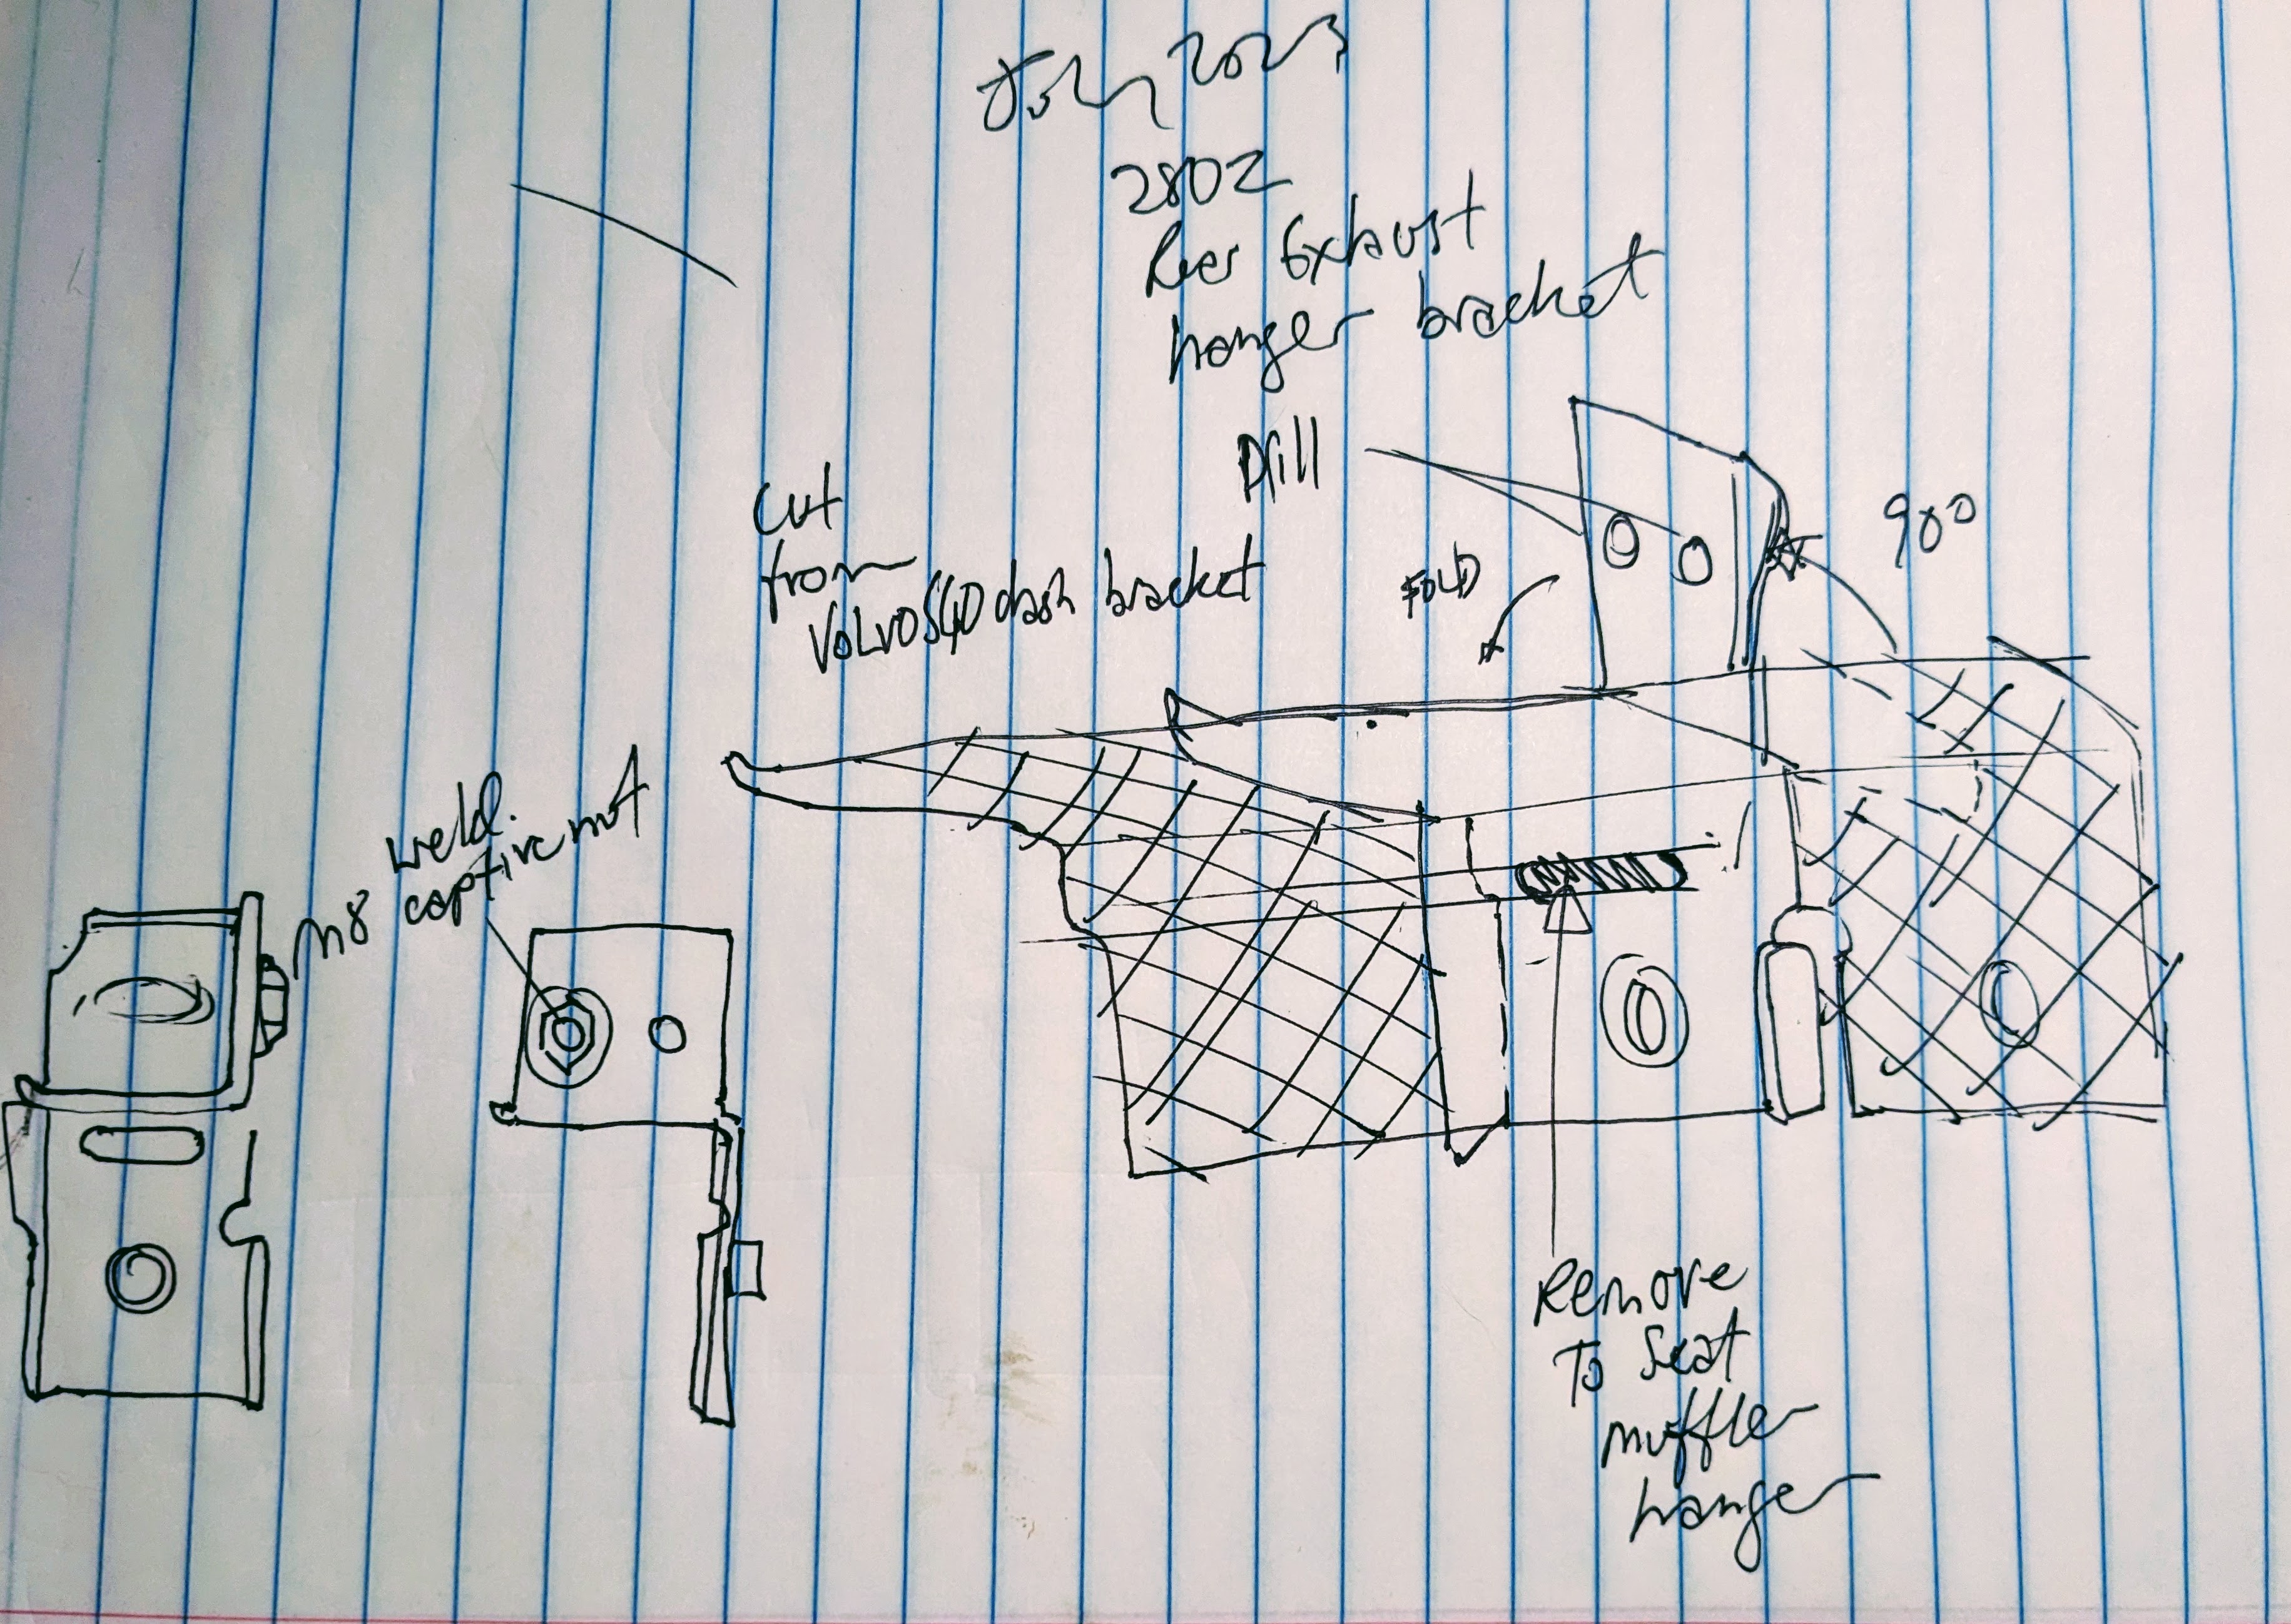 July 2023
280Z
Rear Exhaust
hanger bracket
Drill
90°
Cut
from
VOLVO S40 dash bracket
FOLD
weld
M8 captive nut
Remove
To Seat
muffler
hanger